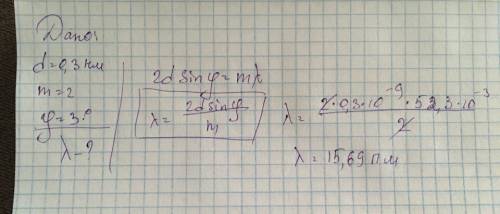 Дано:
d=0,3 нм
m=2
φ=3°
λ-?
2d sin φ = mλ
λ = 2d sin φ / m
λ = 2·0,3·10⁻⁹·52,3·10⁻³ / 2
λ = 15,69 пм